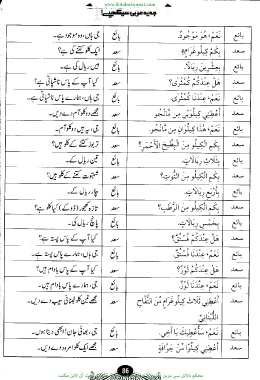 www.KitaboSunnat.com
جدید عربی سیکھیے
بائع نَعَمْ، هُوَ مَوْجُودٌ. بائع جی ہاں، وہ موجود ہے۔
سعد بِكَمْ كِيلُو غَرَامٍ؟ سعد ایک کلو کتنے کی ہے؟
بائع بِعِشْرِينَ رِيَالًا. بائع بیس ریال کی ہے۔
سعد هَلْ عِنْدَكُمْ كُمَّثْرَى؟ سعد کیا آپ کے پاس ناشپاتی ہے؟
بائع نَعَمْ، عِنْدَنَا كُمَّثْرَى. بائع جی ہاں، ہمارے پاس ناشپاتی ہے۔
سعد أَعْطِنِي كِيلُوَيْنِ مِنْ مَانْجُو. سعد مجھے دو کلو آم دے دیں۔
بائع نَعَمْ، هٰذَا كِيلُوَانِ مِنْ مَانْجُو. بائع جی، یہ ہیں دو کلو آم۔
سعد بِكَمِ الْكِيلُو مِنَ الْبِطِّيخِ الْأَحْمَرِ؟ سعد تربوز کتنے کے کلو ہیں؟
بائع بِثَلَاثِ رِيَالَاتٍ. بائع تین ریال کے۔
سعد بِكَمِ الْكِيلُو مِنَ التُّوتِ؟ سعد شہتوت کتنے کے کلو ہیں؟
بائع بِأَرْبَعِ رِيَالَاتٍ. بائع چار ریال کے۔
سعد بِكَمِ الْكِيلُو مِنَ الرُّطَبِ؟ سعد تازہ کھجور کتنے کی کلو ہے؟
بائع بِخَمْسِ رِيَالَاتٍ. بائع پانچ ریال کی۔
سعد هَلْ عِنْدَكُمْ فُسْتُقٌ؟ سعد کیا آپ کے پاس پستہ ہے؟
بائع نَعَمْ، عِنْدَنَا فُسْتُقٌ. بائع جی ہاں، ہمارے پاس پستہ ہے۔
سعد هَلْ عِنْدَكُمْ لَوْزٌ؟ سعد کیا آپ کے پاس بادام ہیں؟
بائع نَعَمْ، عِنْدَنَا لَوْزٌ. بائع جی، ہمارے پاس بادام ہیں۔
سعد أَعْطِنِي ثَلَاثَ كِيلُوغَرَامٍ مِنَ التُّفَّاحِ اللُّبْنَانِيِّ. سعد مجھے تین کلو لبنانی سیب دے دیں۔
بائع نَعَمْ، سَأُعْطِيكَ يَا أَخِي. بائع جی، بھائی جان! ابھی دیتا ہوں۔
سعد أَعْطِنِي كِيلُو مِنْ جَوَافَةٍ. سعد مجھے ایک کلو امرود دے دیں۔
86